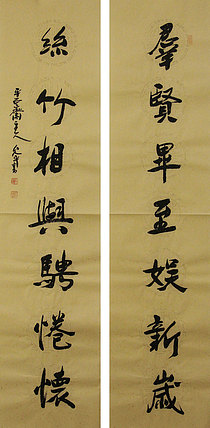 羣賢畢至娱新歲
絲竹相與騁惓懷